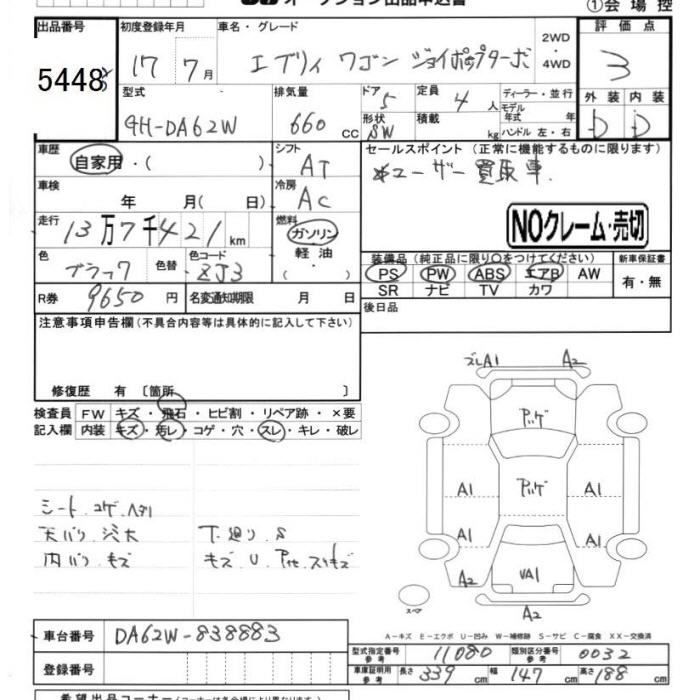 オークション出品申込書
①会場控
出品番号
5448
初度登録年月
17 7月
車名・グレード
エブリィ ワゴン ジョイポップターボ
2WD
・
4WD
評価点
3
外装 内装
D D
型式
GH-DA62W
排気量
660 cc
ドア
5
形状
SW
定員
4 人
積載
kg
ディーラー・並行
モデル
年式 年
ハンドル 左・右
車歴
自家用・( )
シフト
AT
車検
年 月( 日)
冷房
AC
走行
13万7千421km
燃料
ガソリン
軽油
( )
色
ブラック
色替
色コード
ZJ3
R券 9650円
名変通知期限 月 日
セールスポイント (正常に機能するものに限ります)
ユーザー買取車.
NOクレーム・売切
装備品(純正品に限り○をつけてください)
PS PW ABS エアB AW
SR ナビ TV カワ
新車保証書
有・無
後日品
注意事項申告欄(不具合内容等は具体的に記入して下さい)
修復歴 有 〔箇所 〕
検査員
記入欄
FW キズ・飛石・ヒビ割・リペア跡・×要
内装 キズ・汚レ・コゲ・穴・スレ・キレ・破レ
シート.コゲ.ヘタリ
天バリ.汚大
内バリ.キズ
下廻り.S
キズ U
ズレA1 A2
A1 A1
A1 A1
A2 VA1
A2
スペア
A-キズ E-エクボ U-凹み W-補修跡 S-サビ C-腐食 XX-交換済
車台番号
DA62W-838883
登録番号
型式指定番号
参考
11080
類別区分番号
参考
0032
車庫証明用
参考
長さ 339 cm 幅 147 cm 高さ 188 cm
希望出品コーナー